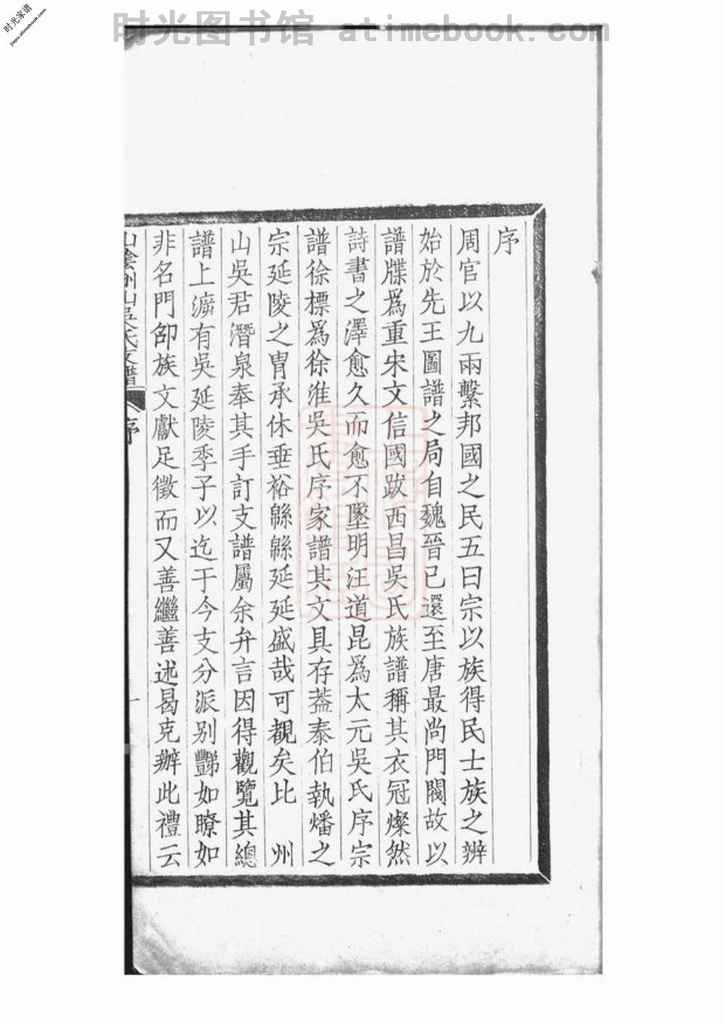 时光图书馆 atimebook.com
时光家谱
序
周官以九兩繫邦國之民五曰宗以族得民士族之辨
始於先王圖譜之局自魏晉已還至唐最尚門閥故以
譜牒爲重宋文信國跋西昌吳氏族譜稱其衣冠燦然
詩書之澤愈久而愈不墜明汪道昆爲太元吳氏序宗
譜徐標爲徐淮吳氏序家譜其文具存葢泰伯執燔之
宗延陵之胄承休垂裕緜緜延延盛哉可覩矣比 州
山吳君潛泉奉其手訂支譜屬余弁言因得觀覽其總
譜上㴑有吳延陵季子以迄于今支分派别豒如瞭如
非名門卲族文獻足徵而又善繼善述曷克辦此禮云
山陰州山吳氏支譜 序